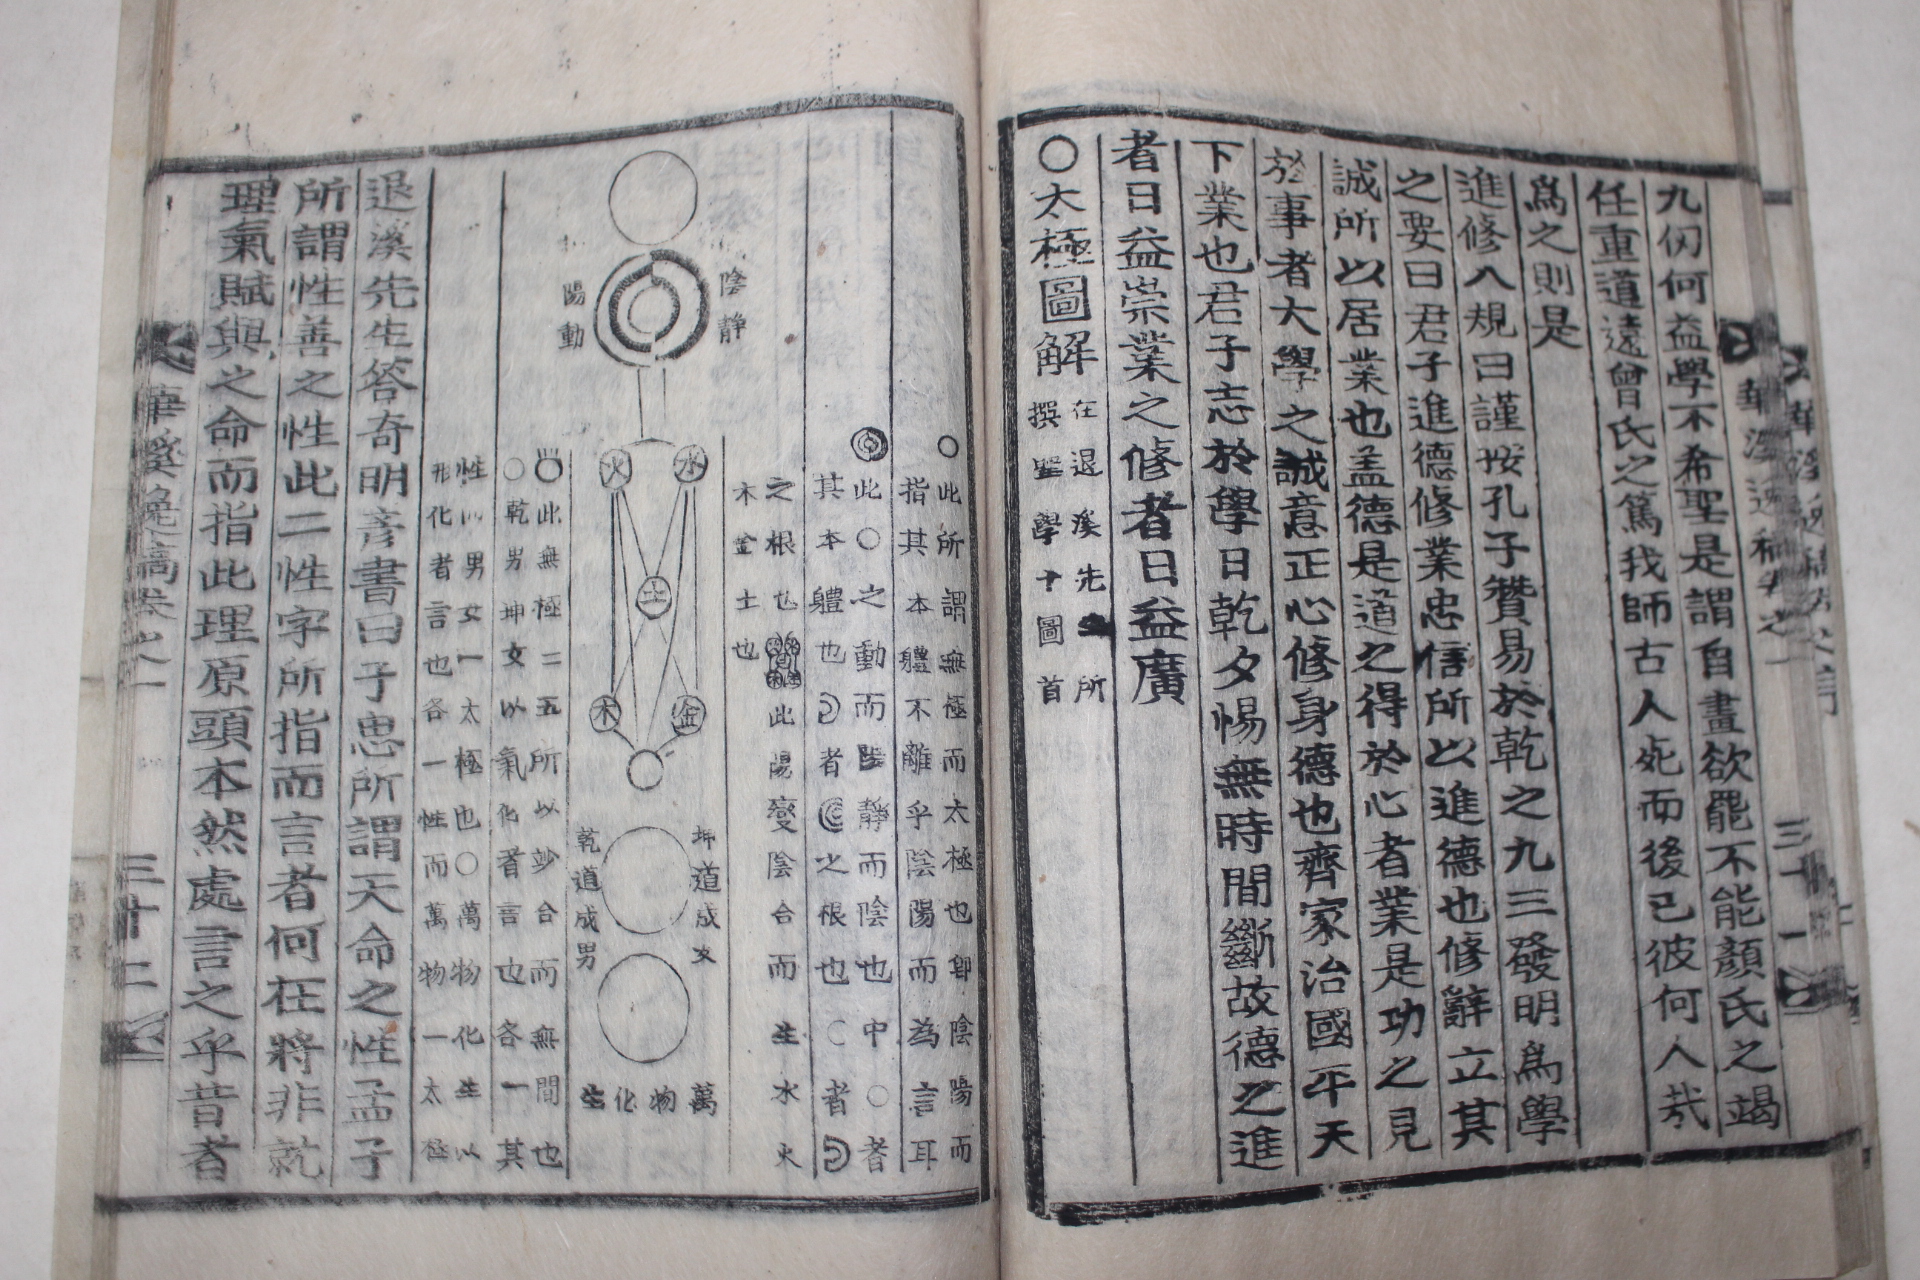 九仞何益學不希聖是謂自畫欲罷不能顏氏之竭
任重道遠曾氏之篤我師古人死而後已彼何人㢤
爲之則是
進修入規曰謹按孔子贊易於乾之九三發明爲學
之要曰君子進德修業忠信所以進德也修辭立其
誠所以居業也盖德是道之得於心者業是功之見
於事者大學之誠意正心修身德也齊家治國平天
下業也君子志於學日乾夕惕無時間斷故德之進
者日益崇業之修者日益廣
○太極圖解
在退溪先生所
撰聖學十圖首
陰靜
陽動
水
火
土
金
木
坤道成女
乾道成男
萬物化生
○此所謂無極而太極也卽陰陽而
指其本軆不離乎陰陽而為言耳
此○之動而陽靜而陰也中○者
其本軆也
者
之根也
者
之根也
此陽變陰合而生水火
木金土也
此無極二五所以妙合而無間也
○乾男坤女以氣化者言也各一其
性
男女一太極也○萬物化生以
形化者言也各一性而萬物一太極
退溪先生答奇明彥書曰子思所謂天命之性孟子
所謂性善之性此二性字所指而言者何在將非就
理氣賦與之命而指此理原頭本然處言之乎昔者
華溪逸稿卷之一
三十一
三十二